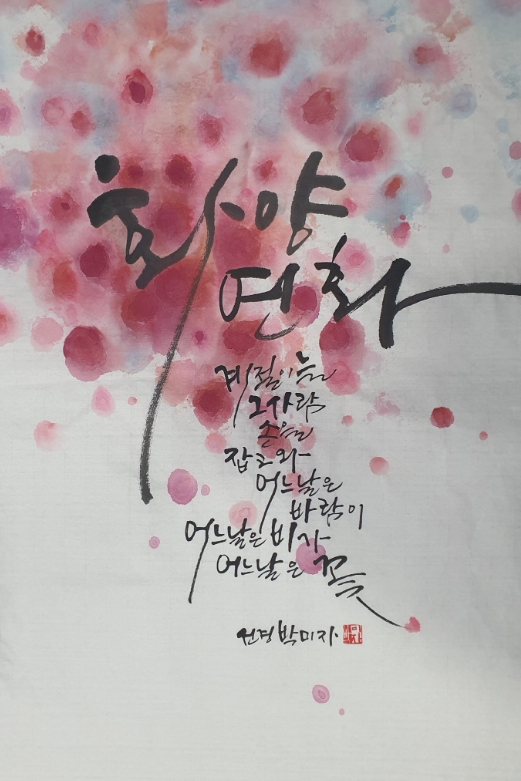 화양
연화
계절이 는
그 사람
손을
잡고 와
어느 날은
바람이
어느 날은 비가
어느 날은 꽃
선경 박미자